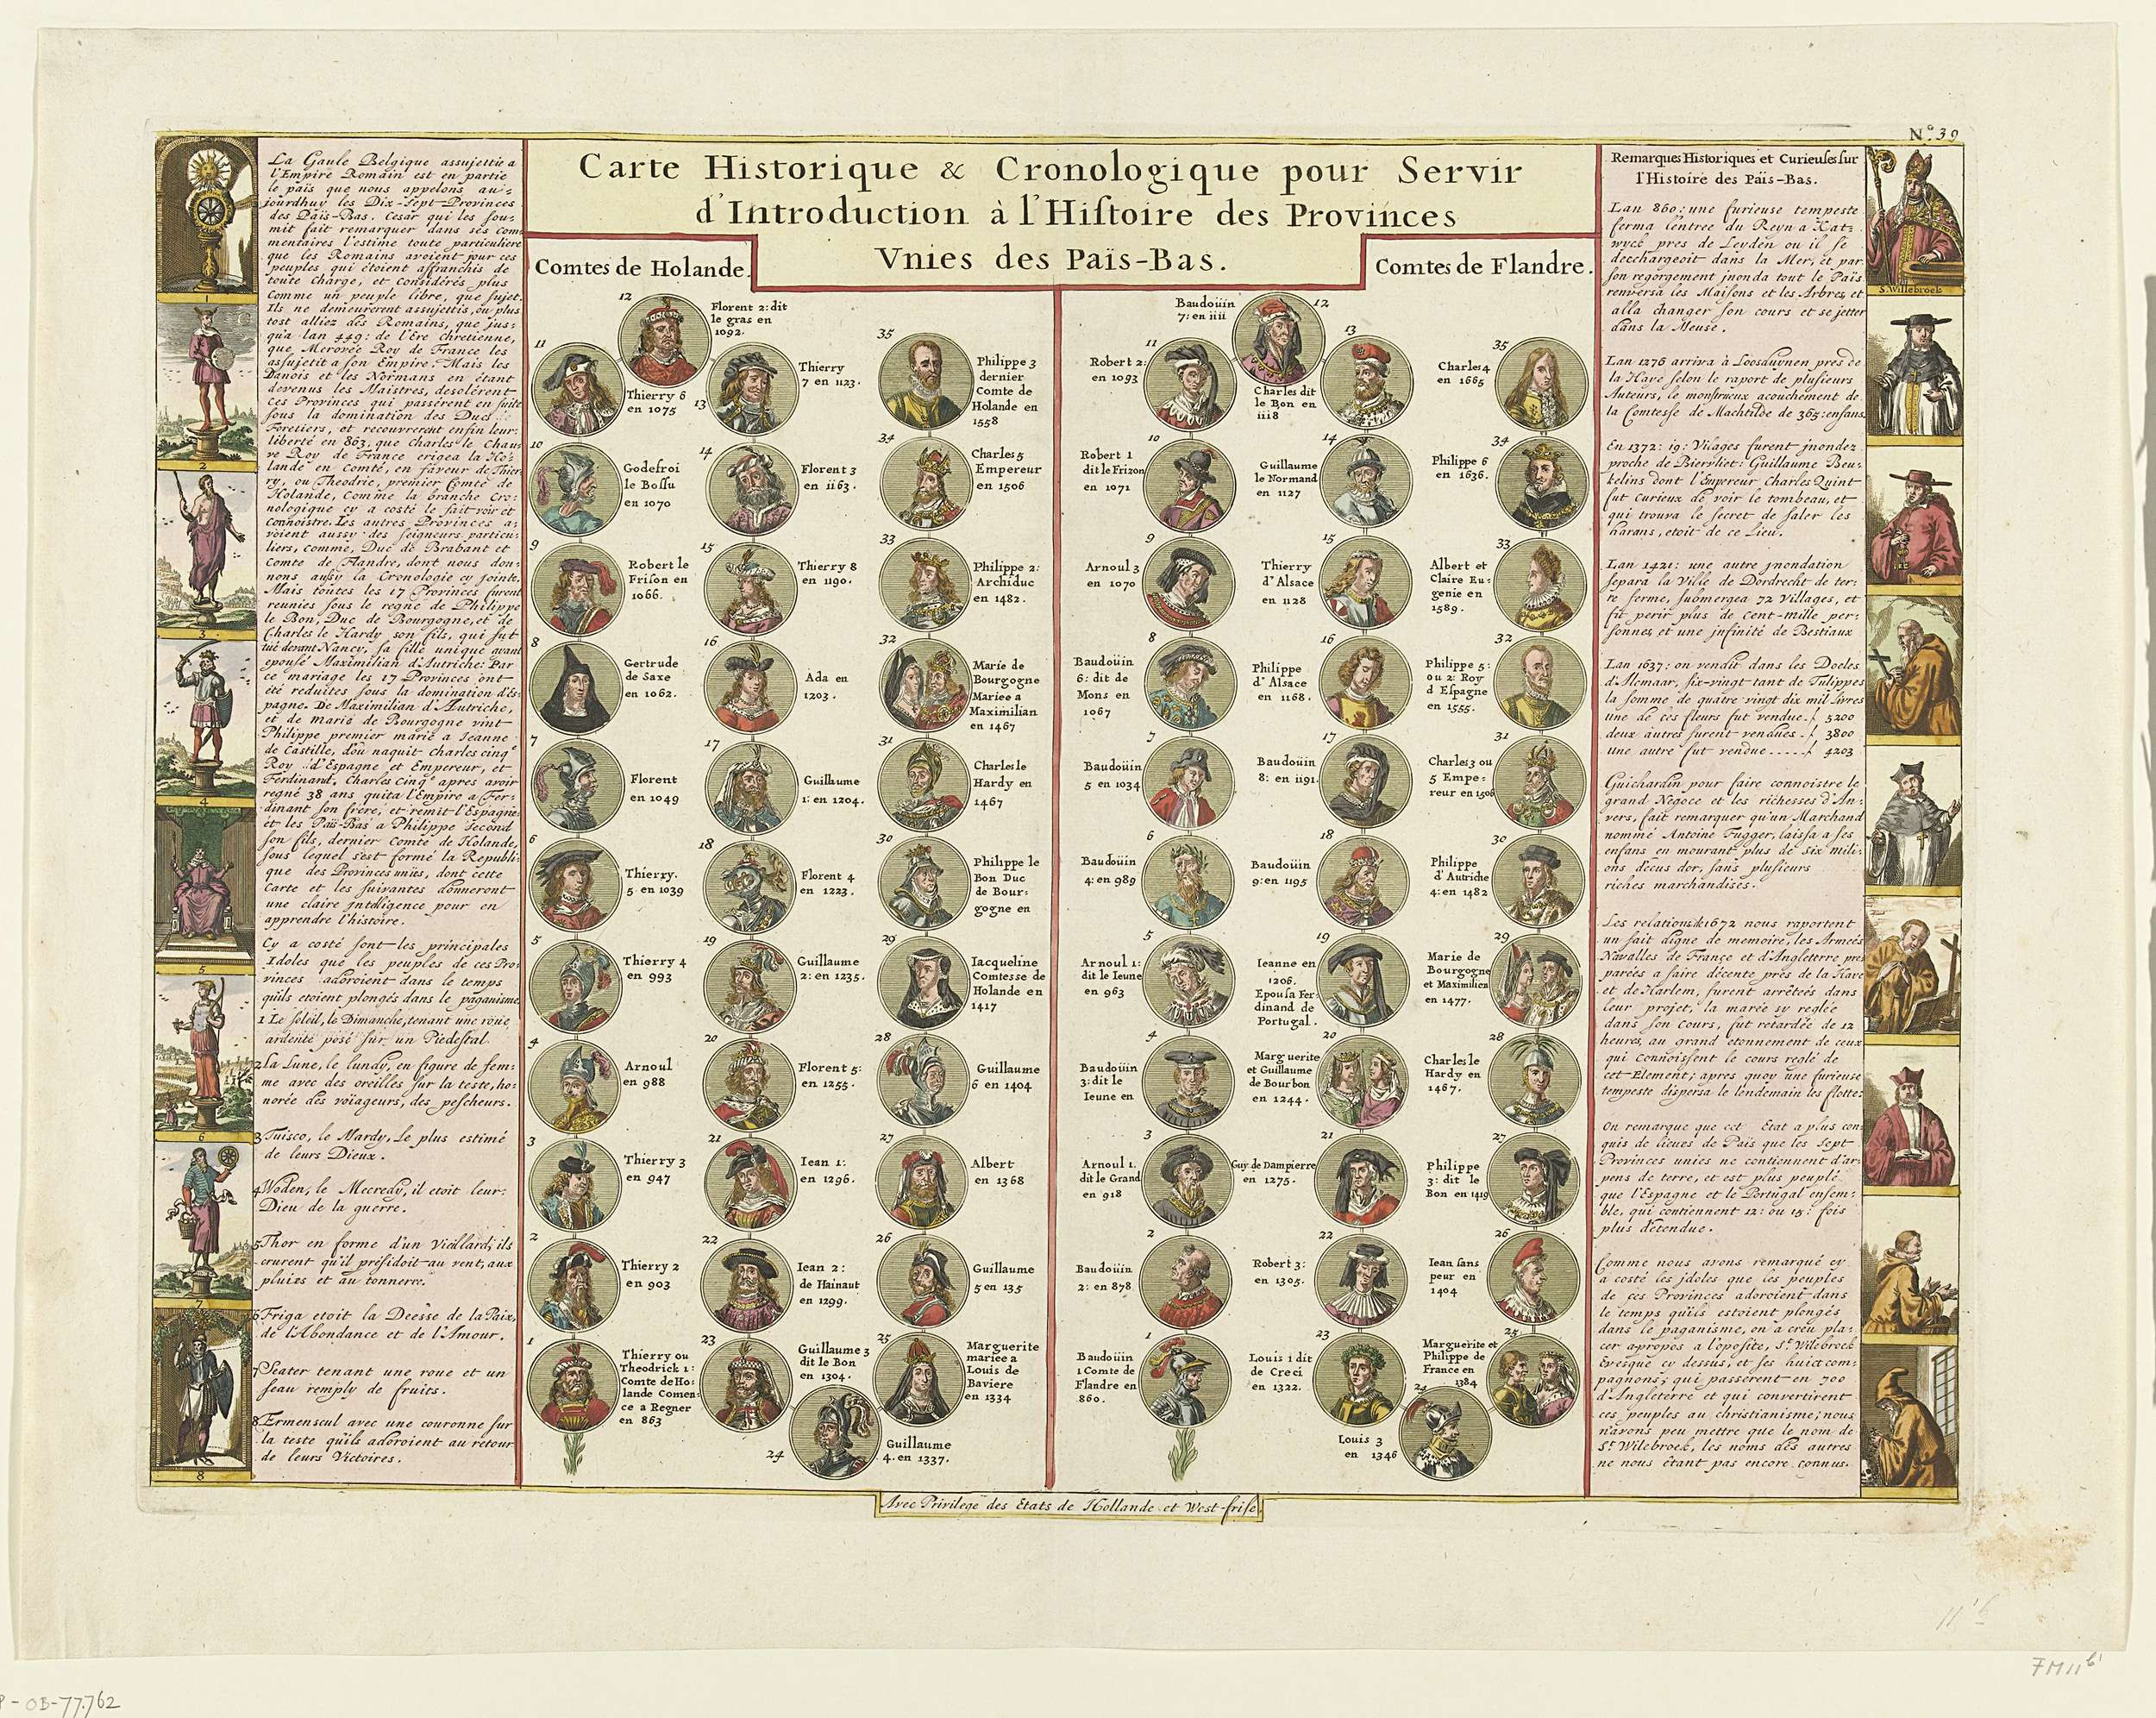 N.º 39
Carte Historique & Cronologique pour Servir
d'Introduction à l'Hiſtoire des Provinces
Vnies des Païs-Bas.
La Gaule Belgique assujettie a
l'Empire Romain est en partie
le païs que nous appelons au-
jourdhuy les Dix-Sept-Provinces
des Païs-Bas. Cesar qui les sou-
mit fait remarquer dans ses com
mentaires l'estime toute particuliere
que les Romains avoient pour ces
peuples qui étoient affranchis de
toute charge, et considérés plus
Comme un peuple libre, que sujet.
Ils ne demeurerent assujettis, ou plus
tost alliez des Romains, que jus-
qu'a lan 449: de l'Ere chrétienne,
que Merovée Roy de France les
assujetit a son Empire. Mais les
Danois et les Normans en étant
devenus les Maistres, desolérent
ces Provinces qui passérent en suite
sous la domination des Ducs
Foretiers, et recouvrerent enfin leur
liberté en 863, que Charles le Chau-
ve Roy de France erigea la Ho-
lande en Comté, en faveur de Thier
ry, ou Theodric, premier Comté de
Holande, Comme la branche Cro-
nologique cy a costé le fait voir et
connoistre. Les autres Provinces a-
voient aussy des seigneurs particu-
liers, comme, Duc de Brabant et
Comte de Flandre, dont nous don-
nons aussy la Cronologie cy jointe.
Mais toutes les 17 Provinces furent
reunies sous le regne de Philippe
le Bon, Duc de Bourgogne, et de
Charles le Hardy son fils, qui fut
tué devant Nancy, sa fille unique avant
epousé Maximilian d'Autriche: Par
ce mariage les 17 Provinces ont
été reduites sous la domination d'Es-
pagne. De Maximilian d'Autriche,
et de marie de Bourgogne vint
Philippe premier marié a Ieanne
de Castille, d'ou naquit charles cinqe
Roy d'Espagne et Empereur, et
Ferdinant, Charles Cinqe apres avoir
regné 38 ans quita l'Empire a Fer-
dinant son frére, et remit l'Espagne
et les Païs-Bas a Philippe Second
son fils, dernier Comte de Holande,
sous lequel s'est formé la Republi-
que des Provinces unies, dont cette
Carte et les suivantes donneront
une claire Intelligence pour en
apprendre l'histoire.
Cy a costé sont les principales
Idoles que les peuples de ces Pro-
vinces adoroient dans le temps
qu'ils etoient plongés dans le paganisme
1 Le Soleil, le Dimanche, tenant une roüe
ardente posé sur un Piedestal.
2 La Lune, le lundy, en figure de fem-
me avec des oreilles sur la teste, ho-
norée des voiageurs, des pescheurs.
3 Tuisco, le Mardy, Le plus estimé
de leurs Dieux.
4 Woden, le Mecredy, il etoit leur
Dieu de la guerre.
5 Thor en forme d'un Vieillard, ils
crurent qu'il présidoit au vent, aux
pluies et au tonnerre.
6 Friga etoit la Deesse de la Paix,
de l'Abondance et de l'Amour.
7 Seater tenant une roue et un
seau remply de fruits.
8 Ermenscul avec une couronne sur
la teste qu'ils adoroient au retour
de leurs Victoires.
1
2
3
4
5
6
7
8
Comtes de Holande.
12
Florent 2: dit
le gras en
1092.
11
Thierry 6
en 1075
13
Thierry
7 en 1123.
35
Philippe 3
dernier
Comte de
Holande en
1558
10
Godefroi
le Boſſu
en 1070
14
Florent 3
en 1163.
34
Charles 5
Empereur
en 1506
9
Robert le
Friſon en
1066.
15
Thierry 8
en 1190.
33
Philippe 2:
Archiduc
en 1482.
8
Gertrude
de Saxe
en 1062.
16
Ada en
1203.
32
Marie de
Bourgogne
Mariee a
Maximilian
en 1467
7
Florent
en 1049
17
Guillaume
1: en 1204.
31
Charles le
Hardy en
1467
6
Thierry.
5 en 1039
18
Florent 4
en 1223.
30
Philippe le
Bon Duc
de Bour:
gogne en
5
Thierry 4
en 993
19
Guillaume
2: en 1235.
29
Iacqueline
Comtesse de
Holande en
1417
4
Arnoul
en 988
20
Florent 5:
en 1255.
28
Guillaume
6 en 1404
3
Thierry 3
en 947
21
Iean 1:
en 1296.
27
Albert
en 1368
2
Thierry 2
en 903
22
Iean 2:
de Hainaut
en 1299.
26
Guillaume
5 en 135
1
Thierry ou
Theodrick 1:
Comte de Ho:
lande Comen:
ce a Regner
en 863
23
Guillaume 3
dit le Bon
en 1304.
25
Marguerite
mariee a
Louis de
Baviere
en 1334
24
Guillaume
4. en 1337.
Comtes de Flandre.
Baudoüin
7: en 1111
12
11
Robert 2:
en 1093
Charles dit
le Bon en
1118
13
35
Charles 4
en 1665
10
Robert 1
dit le Frizon
en 1071
14
Guillaume
le Normand
en 1127
34
Philippe 6
en 1636.
9
Arnoul 3
en 1070
15
Thierry
d'Alsace
en 1128
33
Albert et
Claire Eu:
genie en
1589.
8
Baudoüin
6: dit de
Mons en
1067
16
Philippe
d'Alsace
en 1168.
32
Philippe 5:
ou 2: Roy
d'Espagne
en 1555.
7
Baudoüin
5 en 1034
17
Baudoüin
8: en 1191.
31
Charles 3 ou
5 Empe:
reur en 1506
6
Baudoüin
4: en 989
18
Baudoüin
9: en 1195
30
Philippe
d'Autriche
4: en 1482
5
Arnoul 1:
dit le Ieune
en 963
19
Ieanne en
1206.
Epousa Fer
dinand de
Portugal.
29
Marie de
Bourgogne
et Maximilien
en 1477.
4
Baudoüin
3: dit le
Ieune en
20
Marguerite
et Guillaume
de Bourbon
en 1244.
28
Charles le
Hardy en
1467.
3
Arnoul 1.
dit le Grand
en 918
21
Guy de Dampierre
en 1275.
27
Philippe
3: dit le
Bon en 1419
2
Baudoüin
2: en 878
22
Robert 3:
en 1305.
26
Iean sans
peur en
1404
1
Baudoüin
1 Comte de
Flandre en
860.
23
Louis 1 dit
de Creci
en 1322.
25
Marguerite et
Philippe de
France en
1384
24
Louis 3
en 1346
Remarques Historiques et Curieuſes ſur
l'Histoire des Païs-Bas.
Lan 860: une furieuse tempeste
ferma l'entrée du Reyn a Kat-
wyck pres de Leyden ou il se
dechargeoit dans la Mer, et par
son regorgement jnonda tout le Païs
renversa les Maisons et les Arbres, et
alla changer son cours et se jetter
dans la Meuse.
Lan 1276 arriva à Loosduynen près de
la Haye selon le raport de plusieurs
Auteurs, le monstrueux acouchement de
la Comtesse de Machtilde de 365: enfans
En 1372: 19: Vilages furent jnondez
proche de Biervliet: Guillaume Beu-
kelins dont l'Empereur Charles Quint
fut curieux de voir le tombeau, et
qui trouva le secret de saler les
harans, etoit de ce Lieu.
Lan 1421: une autre jnondation
separa la Ville de Dordrecht de ter-
re ferme, submergea 72 Villages, et
fit perir plus de Cent-mille per-
sonnes et une jnfinité de Bestiaux
Lan 1637: on vendit dans les Docles
d'Alcmaar, six-vingt-tant de Tulippes
la somme de quatre vingt dix mil livres
une de ces fleurs fut vendue. ƒ 5200
deux autres furent vendues . ƒ 3800
une autre fut vendue ..... ƒ 4203
Guichardin pour faire connoistre le
grand Negoce et les richesses d'An-
vers, fait remarquer qu'un Marchand
nommé Antoine Fugger, laissa a ses
enfans en mourant plus de six mili-
ons d'écus dor, sans plusieurs
riches marchandises.
Les relations de 1672 nous raportent
un fait digne de memoire, les Armées
Navalles de France et d'Angleterre pre
parées a faire décente près de la Haye
et de Harlem, furent arrêteés dans
leur projet, la marée sy reglée
dans son Cours, fut retardée de 12
heures, au grand etonnement de ceux
qui connoissent le cours reglé de
cet-Element; apres quoy une furieuse
tempeste dispersa le lendemain les flottes
On remarque que cet Etat a plus con
quis de lieues de Païs que les Sept
Provinces unies ne contiennent d'ar-
pens de terre, et est plus peuplé
que l'Espagne et le Portugal ensem-
ble, qui contiennent 12: ou 15: fois
plus détendue.
Comme nous avons remarqué cy
a costé les jdoles que les peuples
de ces Provinces adoroient dans
le temps qu'ils estoient plongés
dans le paganisme, on a creu pla-
cer apropos a l'oposite, St. Wilebroek
Evesque cy dessus, et ses huict com-
pagnons; qui passérent en 700
d'Angleterre et qui convertirent
ces peuples au christianisme; nous
n'avons peu mettre que le nom de
St. Wilebroek, les noms des autres
ne nous étant pas encore connus.
S. Willebroek
Avec Privilege des Etats de Hollande et West-frise
FM 11 b'
P-OB-77.762